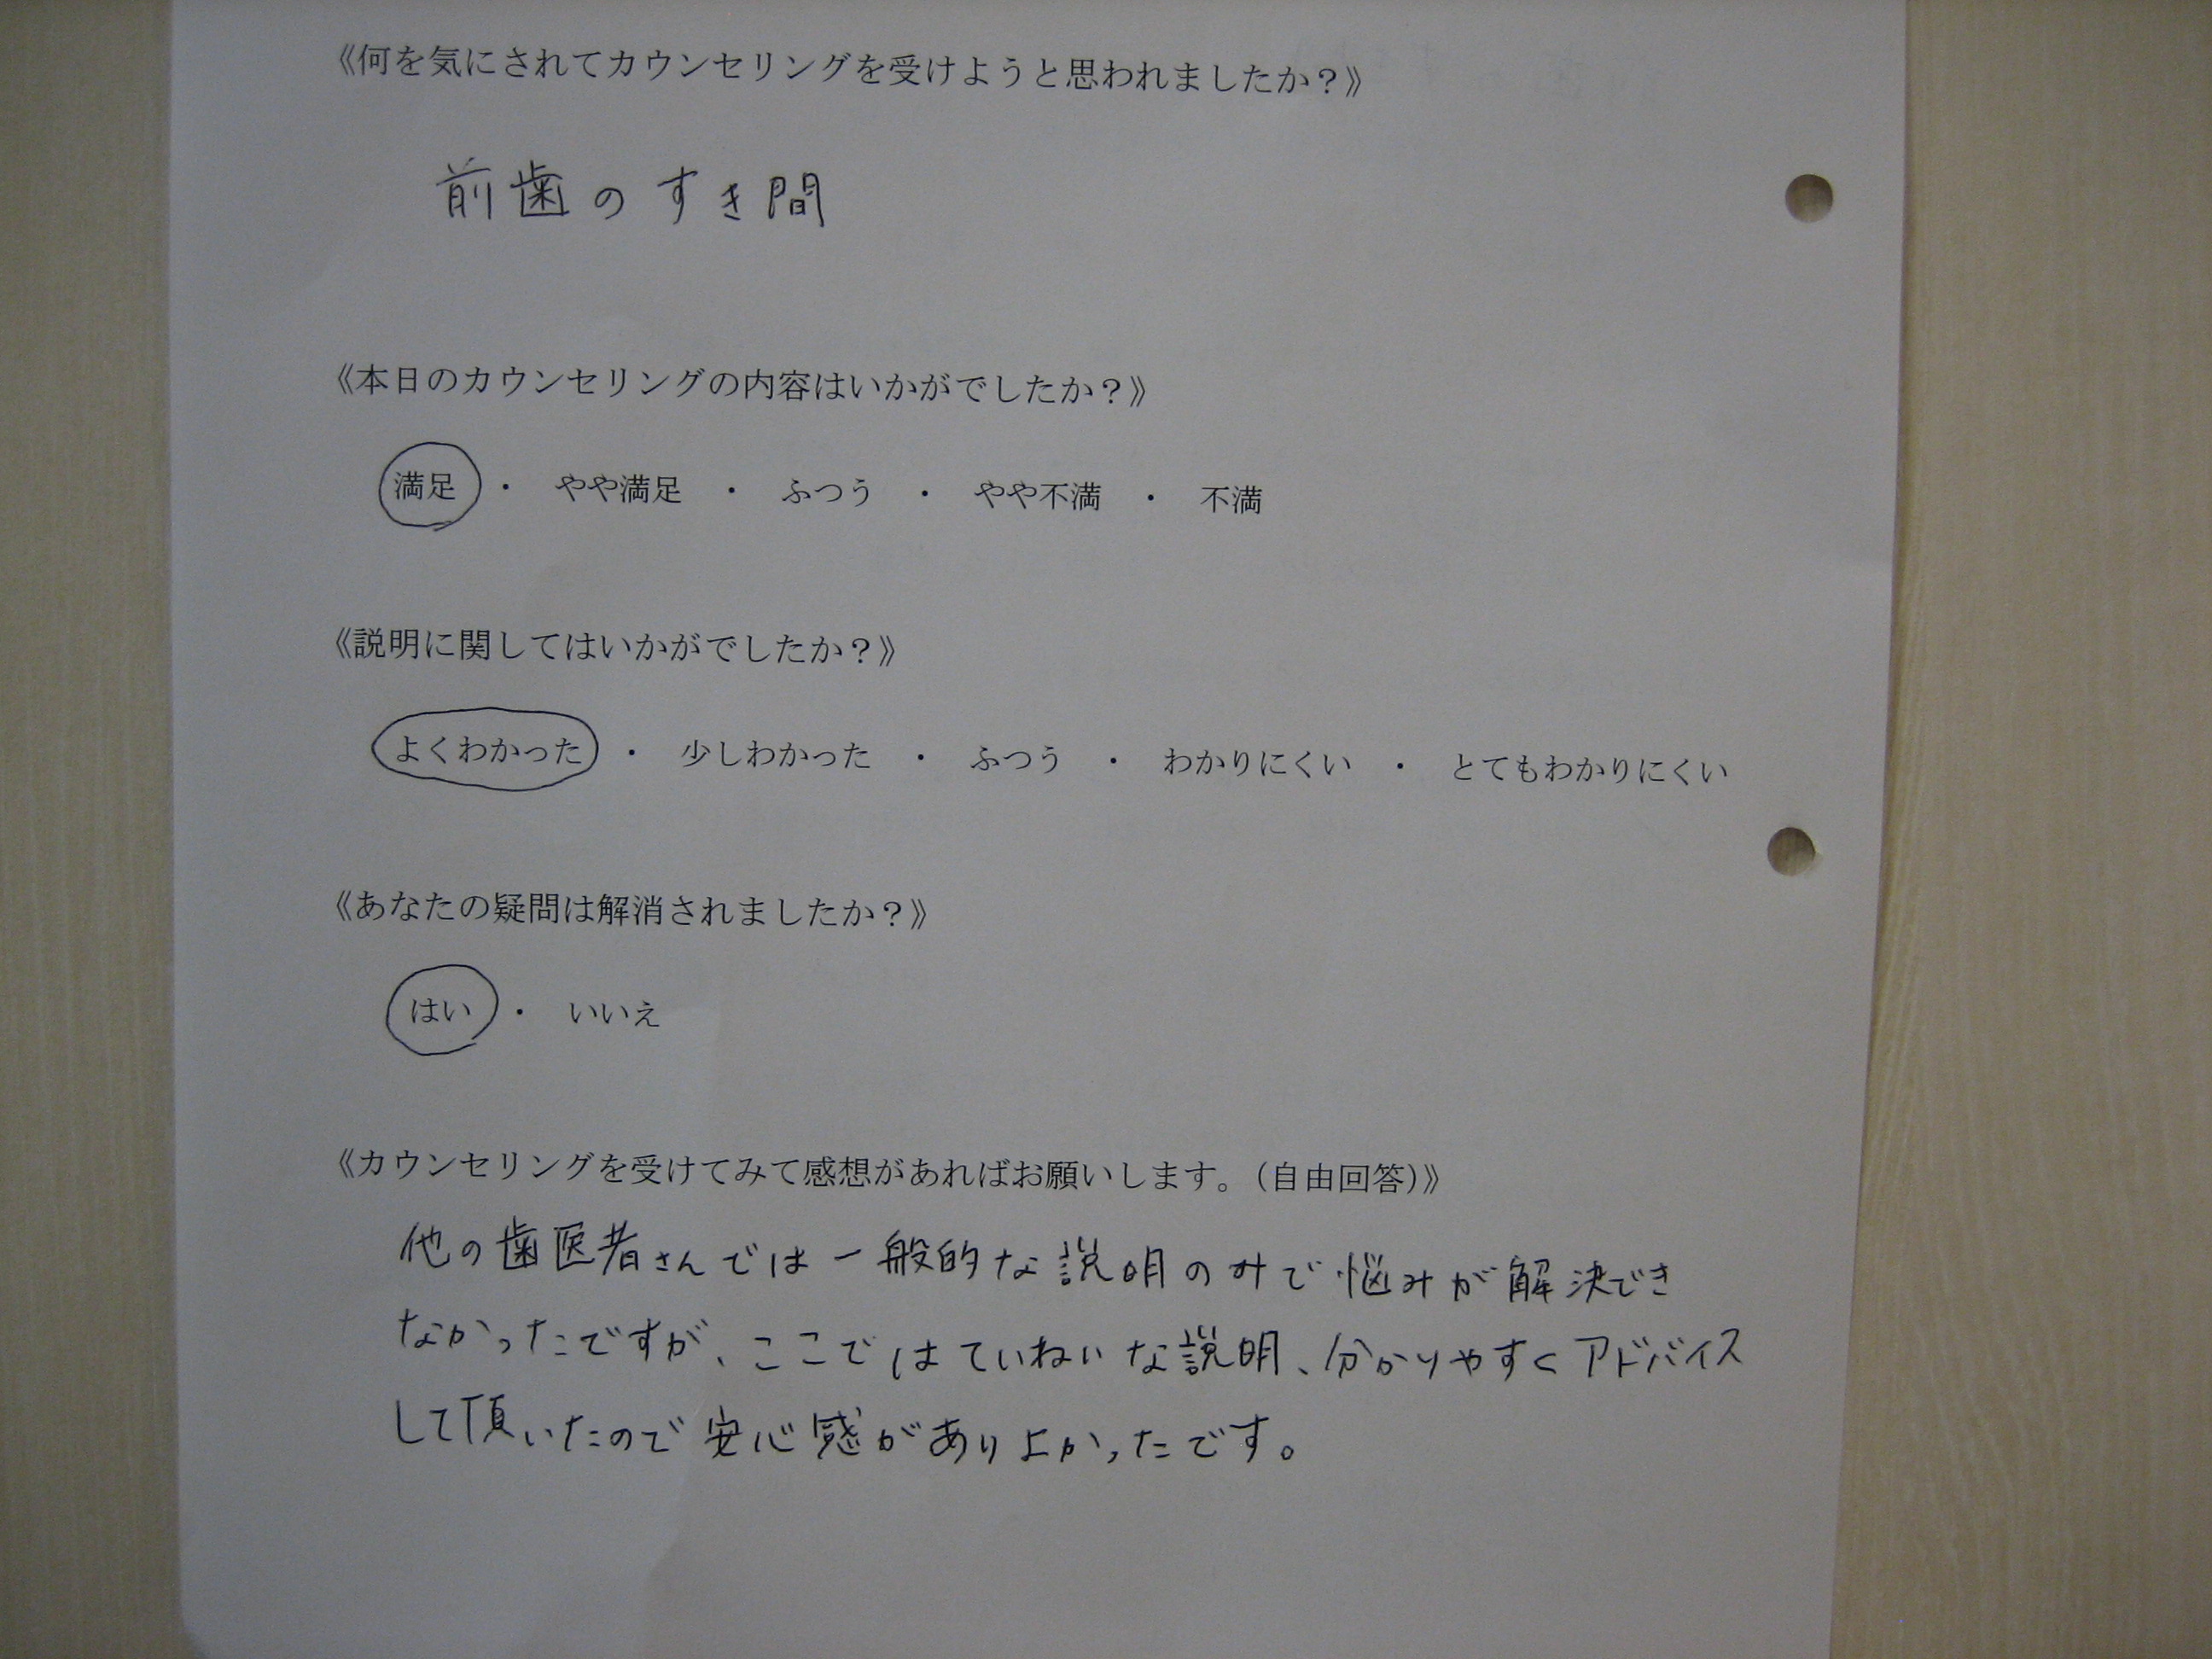 《何を気にされてカウンセリングを受けようと思われましたか？》
前歯のすき間
《本日のカウンセリングの内容はいかがでしたか？》
満足 ・ やや満足 ・ ふつう ・ やや不満 ・ 不満
《説明に関してはいかがでしたか？》
よくわかった ・ 少しわかった ・ ふつう ・ わかりにくい ・ とてもわかりにくい
《あなたの疑問は解消されましたか？》
はい ・ いいえ
《カウンセリングを受けてみて感想があればお願いします。（自由回答）》
他の歯医者さんでは一般的な説明のみで悩みが解決でき
なかったですが、ここではていねいな説明、分かりやすくアドバイス
して頂いたので安心感がありよかったです。